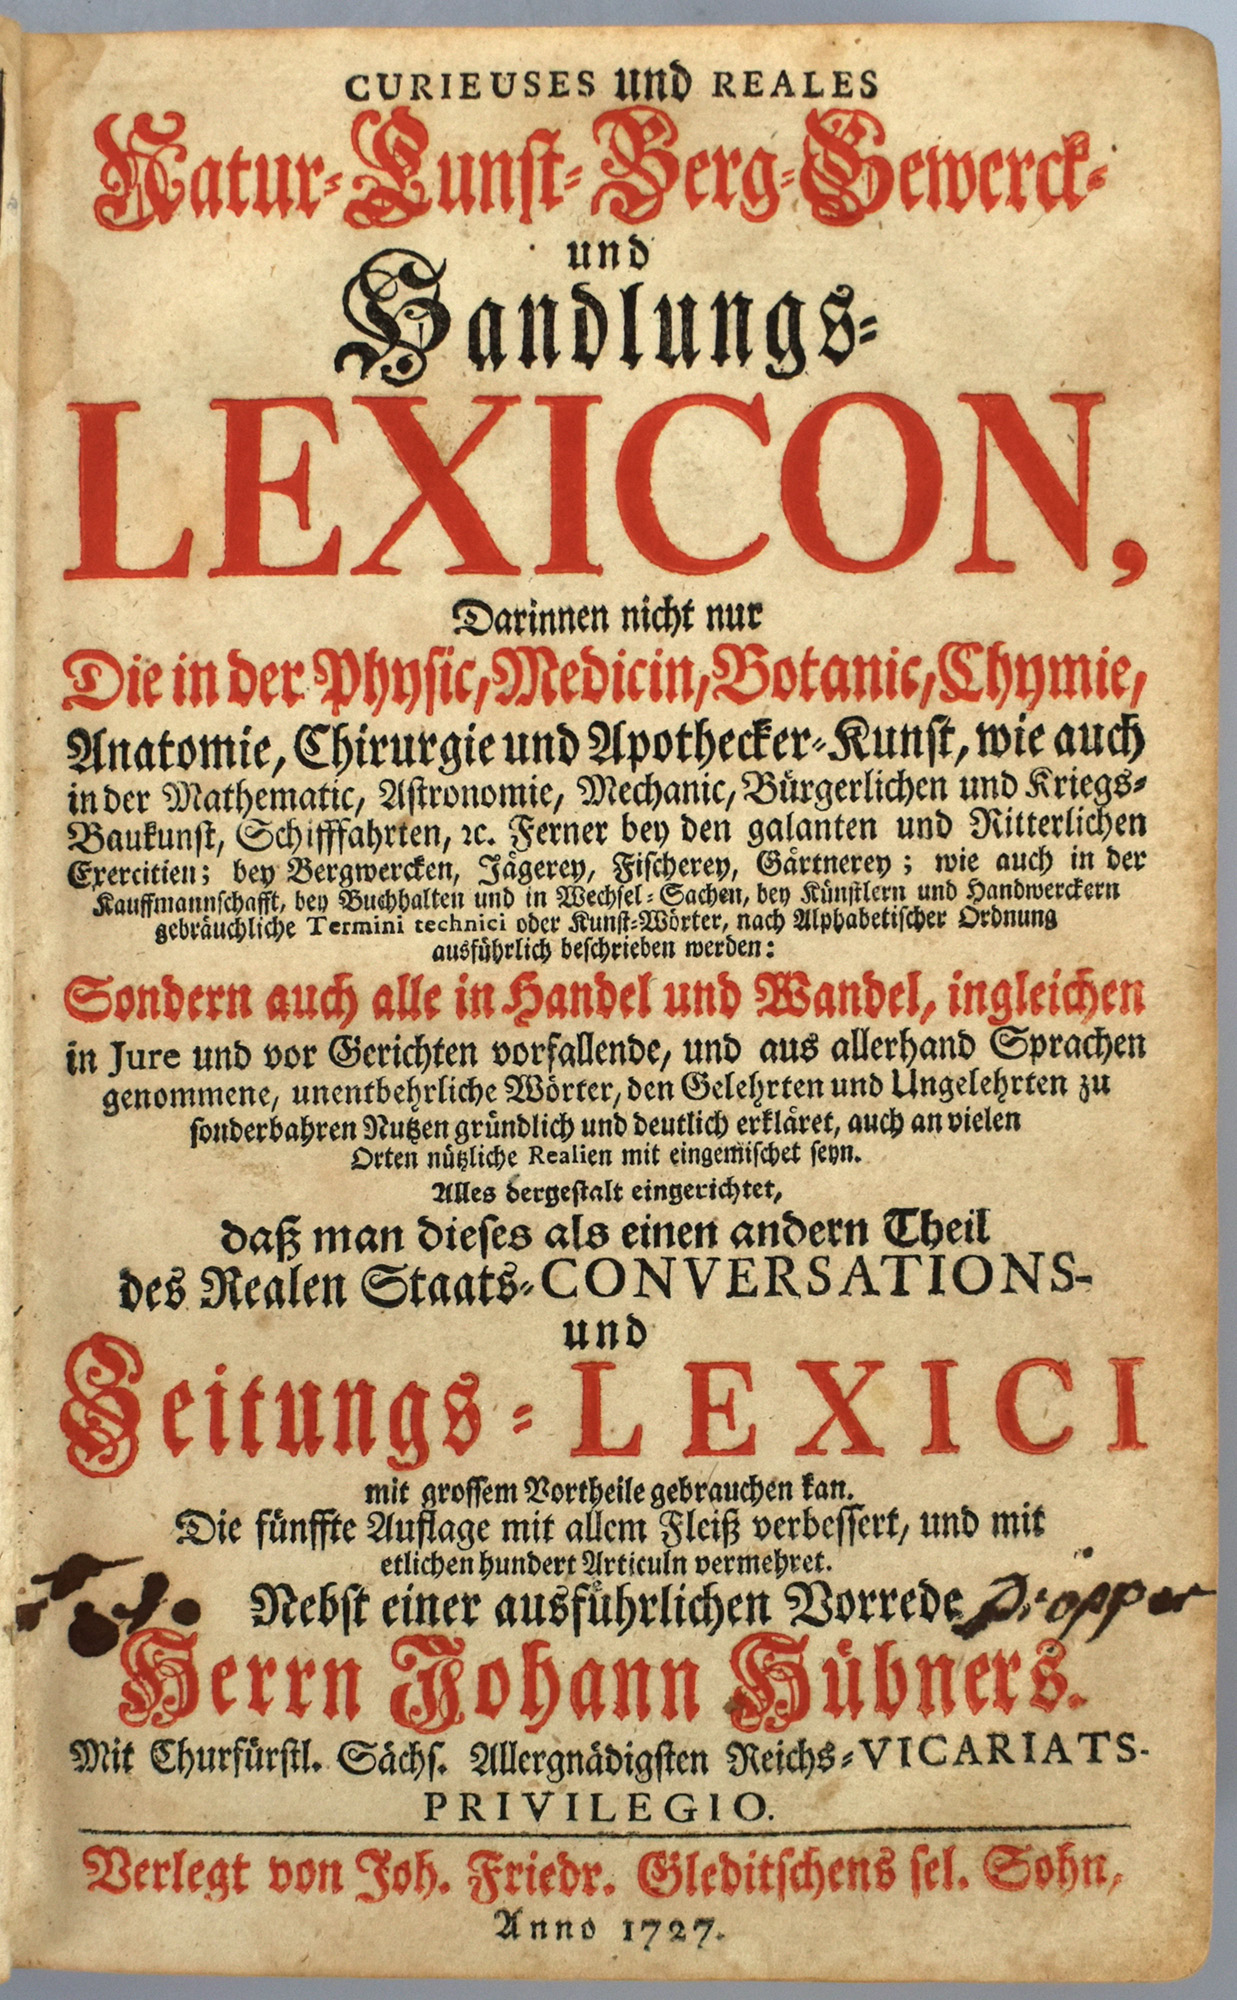 CURIEUSES und REALES
Natur-Kunst-Berg-Gewerck-
und
Handlungs-
LEXICON,
Darinnen nicht nur
Die in der Physic, Medicin, Botanic, Chymie,
Anatomie, Chirurgie und Apothecker-Kunst, wie auch
in der Mathematic, Astronomie, Mechanic, Bürgerlichen und Kriegs-
Baukunst, Schifffahrten, ꝛc. Ferner bey den galanten und Ritterlichen
Exercitien; bey Bergwercken, Jägerey, Fischerey, Gärtnerey; wie auch in der
Kauffmannschafft, bey Buchhalten und in Wechsel-Sachen, bey Künstlern und Handwerckern
gebräuchliche Termini technici oder Kunst-Wörter, nach Alphabetischer Ordnung
ausführlich beschrieben werden:
Sondern auch alle in Handel und Wandel, ingleichen
in Jure und vor Gerichten vorfallende, und aus allerhand Sprachen
genommene, unentbehrliche Wörter, den Gelehrten und Ungelehrten zu
sonderbahren Nutzen gründlich und deutlich erkläret, auch an vielen
Orten nützliche Realien mit eingemischet seyn.
Alles dergestalt eingerichtet,
daß man dieses als einen andern Theil
des Realen Staats-CONVERSATIONS-
und
Zeitungs-LEXICI
mit grossem Vortheile gebrauchen kan.
Die fünffte Auflage mit allem Fleiß verbessert, und mit
etlichen hundert Articuln vermehret.
Nebst einer ausführlichen Vorrede
Herrn Johann Hübners.
Mit Churfürstl. Sächs. Allergnädigsten Reichs-VICARIATS-
PRIVILEGIO.
Verlegt von Joh. Friedr. Gleditschens sel. Sohn,
Anno 1727.